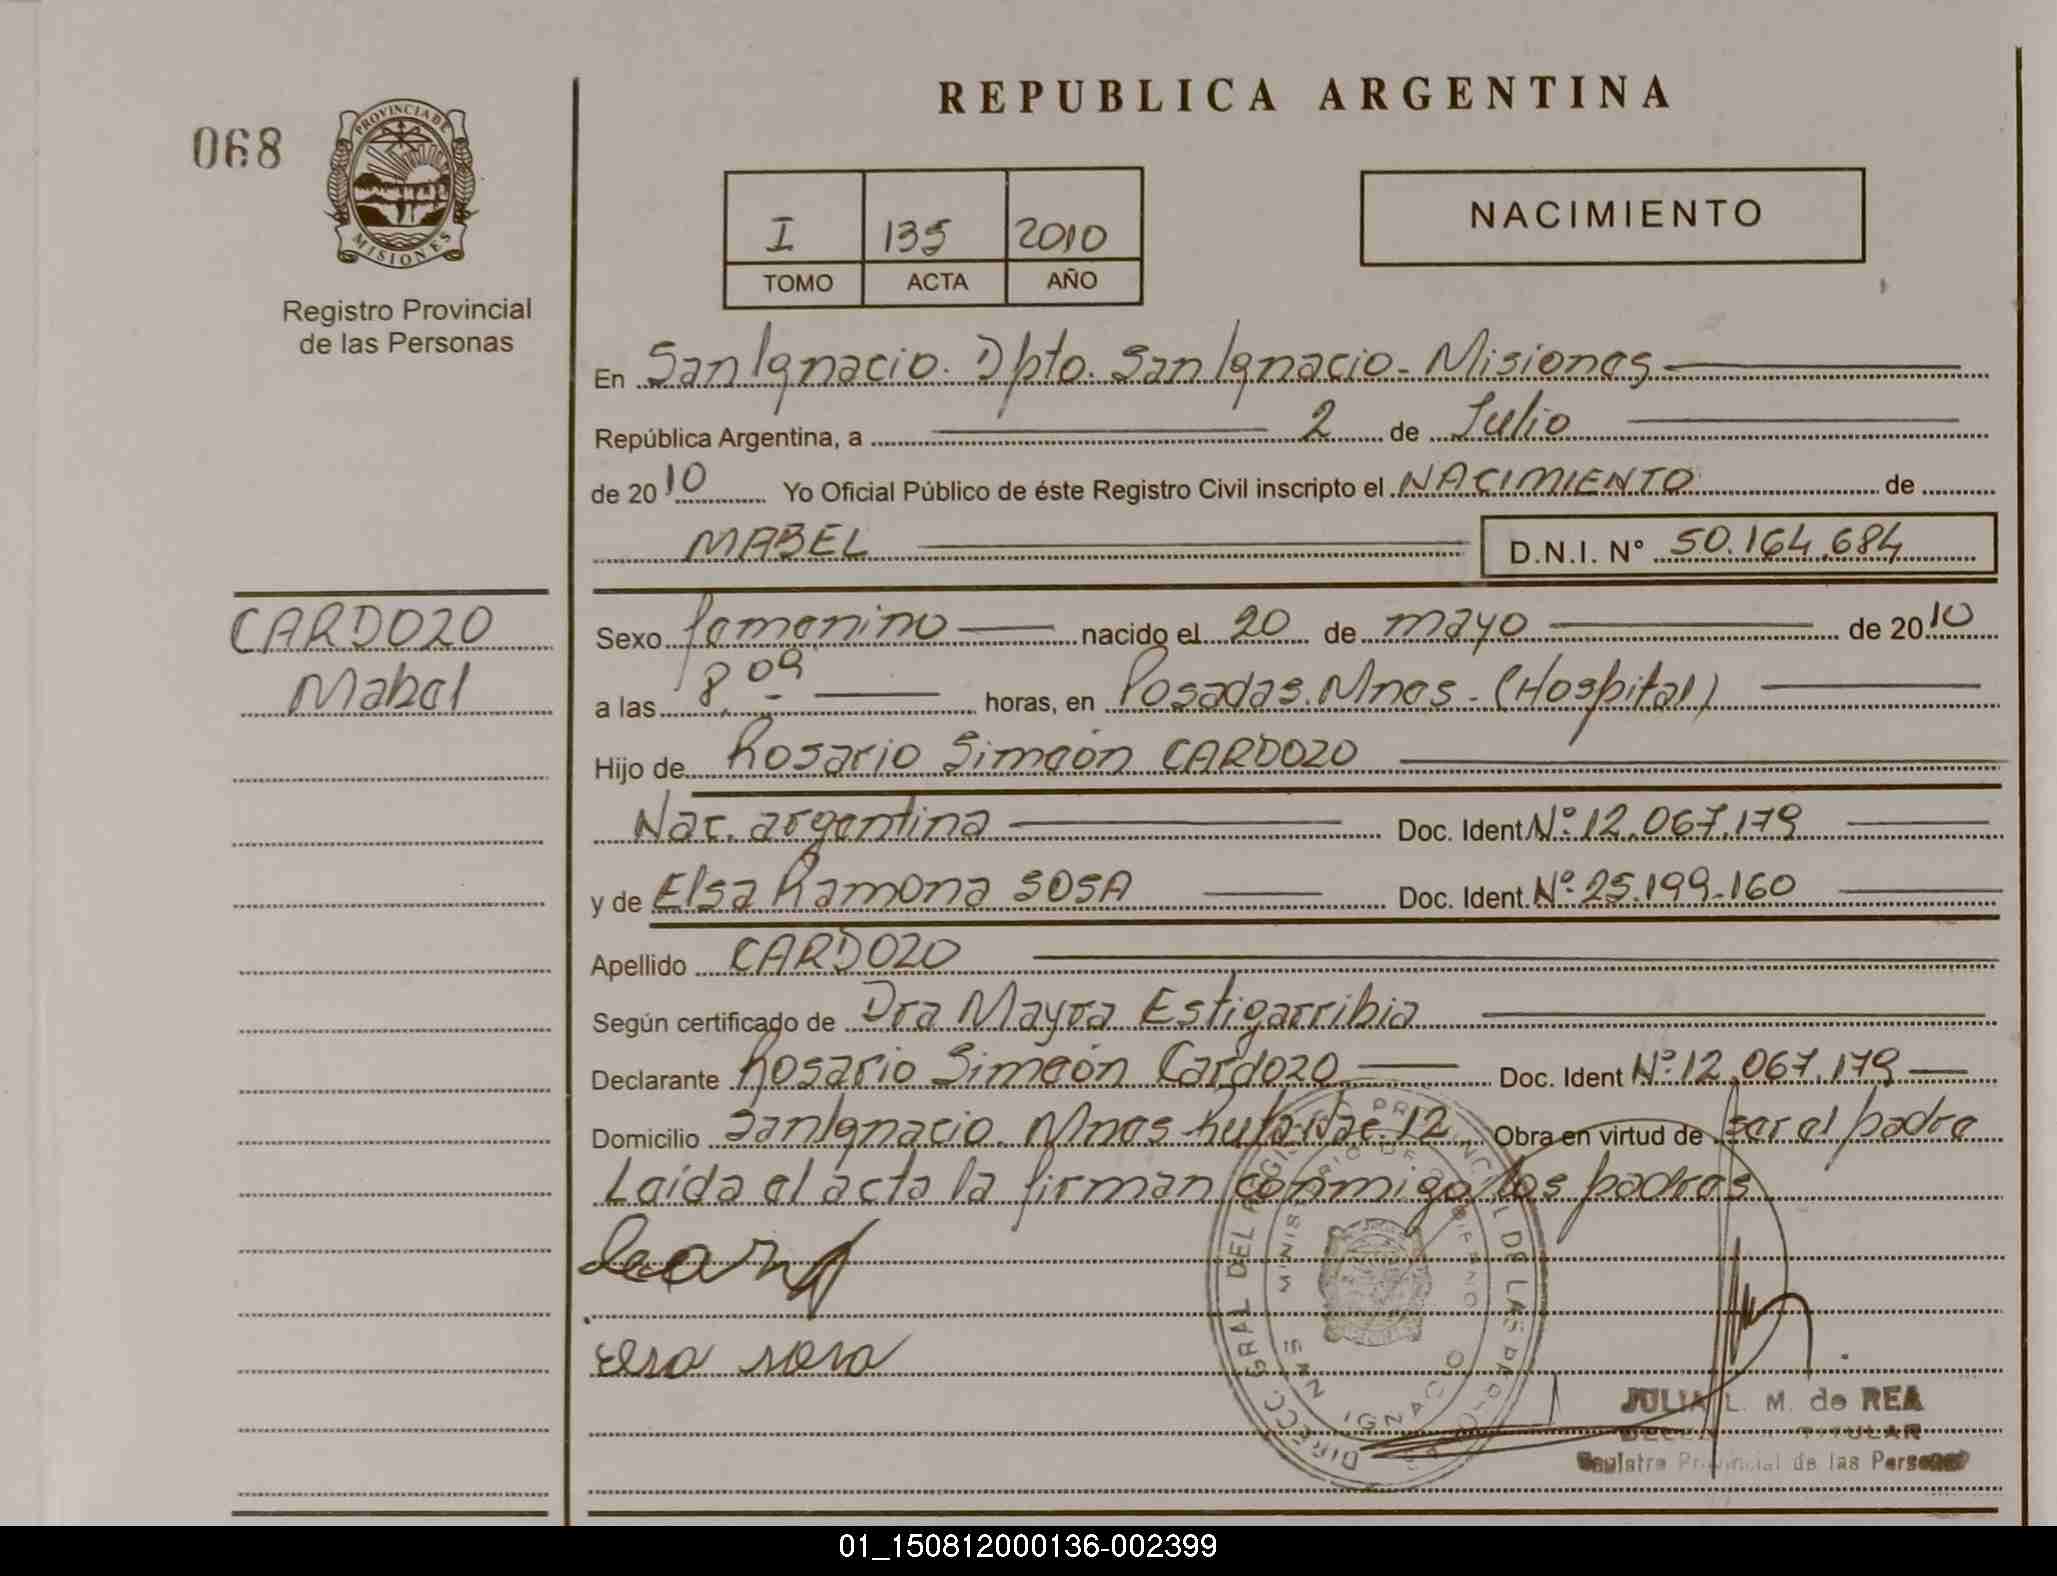 REPUBLICA ARGENTINA
068
PROVINCIA DE
MISIONES
Registro Provincial
de las Personas
NACIMIENTO
I 135 2010
TOMO ACTA AÑO
En San Ignacio. Dpto. San Ignacio - Misiones
República Argentina, a 2 de Julio
de 2010 Yo Oficial Público de éste Registro Civil inscripto el NACIMIENTO de
MABEL D.N.I. N° 50.164.684
CARDOZO
Mabel
Sexo femenino nacido el 20 de mayo de 2010
a las 8,09 horas, en Posadas. Mnes - (Hospital)
Hijo de Rosario Simeón CARDOZO
Nac. argentina Doc. Ident Nº 12.067.179
y de Elsa Ramona SOSA Doc. Ident. Nº 25.199.160
Apellido CARDOZO
Según certificado de Dra Mayra Estigarribia
Declarante Rosario Simeón Cardozo Doc. Ident Nº 12.067.179
Domicilio San Ignacio. Mnes Ruta Nac. 12 Obra en virtud de ser el padre
Leída el acta la firman conmigo los padres
elsa sosa
JULIA L. M. de REA
TITULAR
Registro Provincial de las Personas
01_150812000136-002399